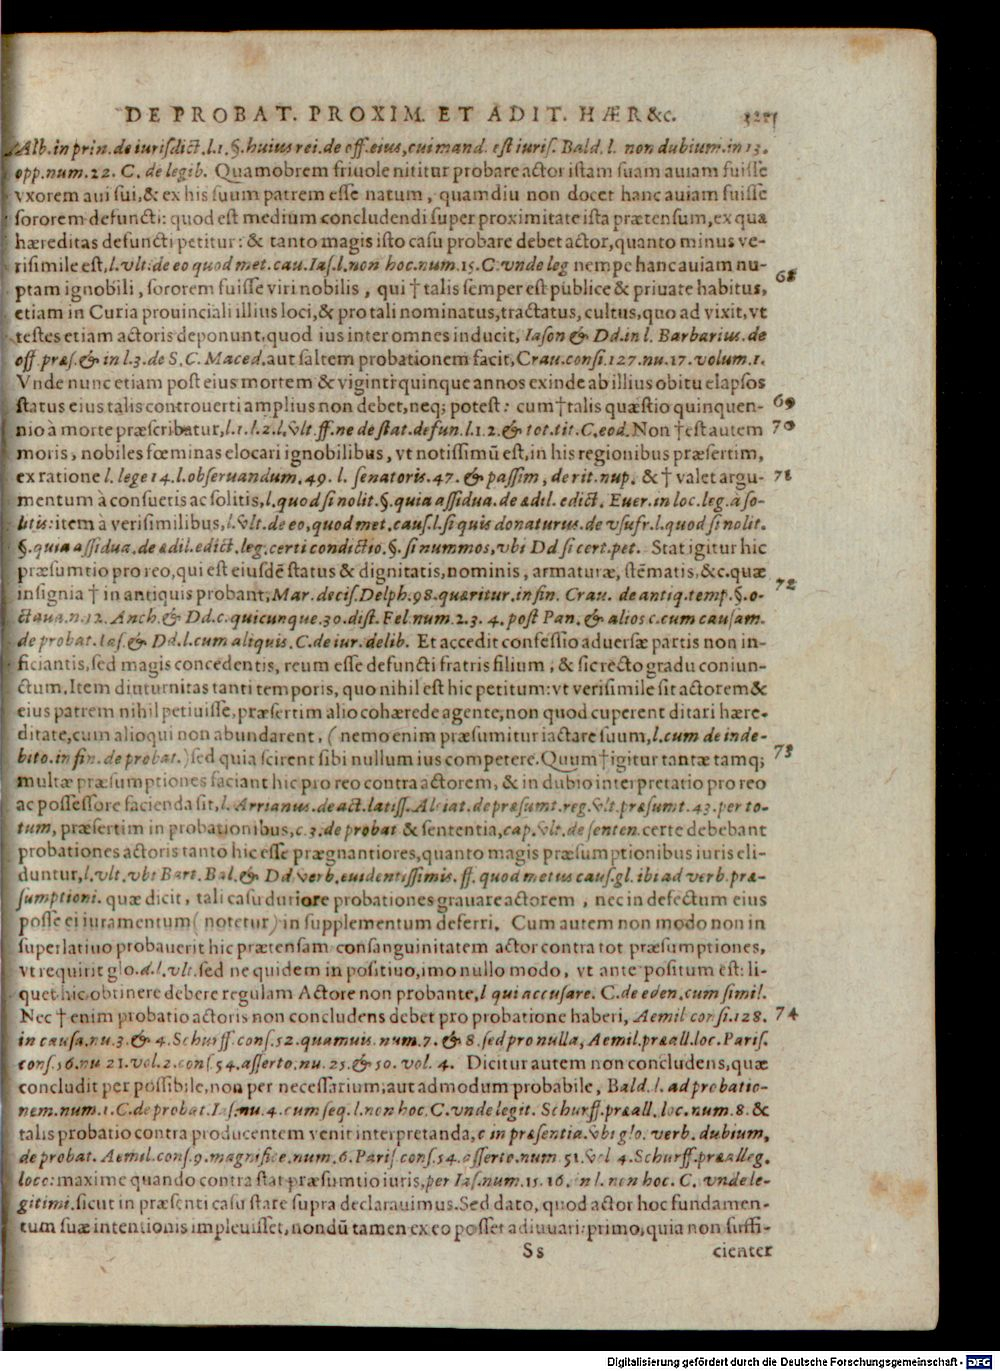 DE PROBAT. PROXIM. ET ADIT. HÆR&c.
Alb.in prin.de iurisdict.l.1.§.huius rei.de off.eius,cui mand. est iuris. Bald. l. non dubium.in 13.
opp.num.22. C. de legib. Quamobrem friuole nititur probare actor istam suam auiam fuisse
vxorem aui sui,& ex his suum patrem esse natum, quamdiu non docet hanc auiam fuisse
sororem defuncti: quod est medium concludendi super proximitate ista prætensum,ex qua
hæreditas defuncti petitur: & tanto magis isto casu probare debet actor,quanto minus ve-
risimile est,l.vlt.de eo quod met.cau.Ias.l.non hoc.num.15.C.vnde leg nempe hanc auiam nu- 68
ptam ignobili, sororem fuisse viri nobilis, qui † talis semper est publice & priuate habitus,
etiam in Curia prouinciali illius loci,& pro tali nominatus,tractatus, cultus,quo ad vixit,vt
testes etiam actoris deponunt,quod ius inter omnes inducit, Iason & Dd.in l. Barbarius.de
off.præs.& in l.3.de S.C. Maced.aut saltem probationem facit,Crau.consi.127.nu.17.volum.1.
Vnde nunc etiam post eius mortem & viginti quinque annos exinde ab illius obitu elapsos
status eius talis controuerti amplius non debet,neq; potest: cum † talis quæstio quinquen- 69
nio à morte præscribatur,l.1.l.2.l.vlt.ff.ne de stat.defun.l.1.2.& tot.tit.C.eod.Non † est autem 70
moris, nobiles fœminas elocari ignobilibus, vt notissimũ est,in his regionibus præsertim,
ex ratione l. lege 14.l.observandum.49. l. senatoris.47. & passim, de rit.nup. & † valet argu- 71
mentum à consuetis ac solitis,l.quod si nolit.§.quia assidua.de ædil. edict. Euer.in loc.leg.à so-
litis:item à verisimilibus,l.vlt.de eo,quod met.caus.l.si quis donaturus.de vsufr.l.quod si nolit.
§.quia assidua.de ædil.edict.leg.certi condictio.§.si nummos,vbi Dd si cert.pet. Stat igitur hic
præsumtio pro reo,qui est eiusdẽ status & dignitatis,nominis, armaturæ, stẽmatis,&c.quæ
insignia † in antiquis probant,Mar.decis.Delph.98.quæritur.in fin. Crau. de antiq.temp.§.o- 72
ctaua.n.12. Anch.& Dd.c.quicunque.30.dist. Fel.num.2.3. 4.post Pan.& alios c.cum causam.
de probat.Ias.& Dd.l.cum aliquis.C.de iur.delib. Et accedit confessio aduersæ partis non in-
ficiantis,sed magis concedentis, reum esse defuncti fratris filium, & sic recto gradu coniun-
ctum.Item diuturnitas tanti temporis, quo nihil est hic petitum:vt verisimile sit actorem &
eius patrem nihil petiuisse,præsertim alio cohærede agente,non quod cuperent ditari hære-
ditate,cum alioqui non abundarent, (nemo enim præsumitur iactare suum,l.cum de inde-
bito.in fin.de probat.)sed quia scirent sibi nullum ius competere.Quum † igitur tantæ tamq; 73
multæ præsumptiones faciant hic pro reo contra actorem, & in dubio interpretatio pro reo
ac possessore facienda sit,l.Arrianus.de act.latiss.Alciat.de præsumt.reg.vlt.præsumt.43.per to-
tum, præsertim in probationibus,c.3.de probat & sententia,cap.vlt.de senten.certe debebant
probationes actoris tanto hic esse prægnantiores,quanto magis præsumptionibus iuris eli-
duntur,l.vlt.vbi Bart.Bal.& Dd verb.euidentissimis.ff.quod metus caus.gl.ibi ad verb.præ-
sumptioni. quæ dicit, tali casu duriore probationes grauare actorem, nec in defectum eius
posse ei iuramentum (notetur) in supplementum deferri. Cum autem non modo non in
superlatiuo probauerit hic prætensam consanguinitatem actor contra tot præsumptiones,
vt requirit glo.d.l.vlt.sed ne quidem in positiuo,imo nullo modo, vt ante positum est: li-
quet hic obtinere debere regulam Actore non probante,l qui accusare. C.de eden.cum simil.
Nec † enim probatio actoris non concludens debet pro probatione haberi, Aemil consi.128. 74
in causa.nu.3.& 4.Schurff.cons.52.quamuis num.7. & 8.sed pro nulla, Aemil.præall.loc.Paris.
cons.56.nu 21.vol.2.cons.54.asserto.nu.25.& 50. vol. 4. Dicitur autem non concludens,quæ
concludit per possibile,non per necessarium;aut admodum probabile, Bald.l. ad probatio-
nem.num.1.C.de probat.Ias.nu.4.cum seq.l.non hoc.C.vnde legit. Schurff.præall.loc.num.8. &
talis probatio contra producentem venit interpretanda,c in præsentia.vbi glo. verb. dubium,
de probat. Aemil.cons.9.magnifice.num.6.Paris cons.54.asserto.num 51.vol 4.Schurff.præalleg.
loco:maxime quando contra stat præsumtio iuris,per Ias.num.15.16.in l.non hoc. C. vnde le-
gitimi.sicut in præsenti casu stare supra declarauimus.Sed dato, quod actor hoc fundamen-
tum suæ intentionis impleuisset,nondũ tamen ex eo posset adiuuari:primo,quia non suffi-
Ss cienter
Digitalisierung gefördert durch die Deutsche Forschungsgemeinschaft - DFG